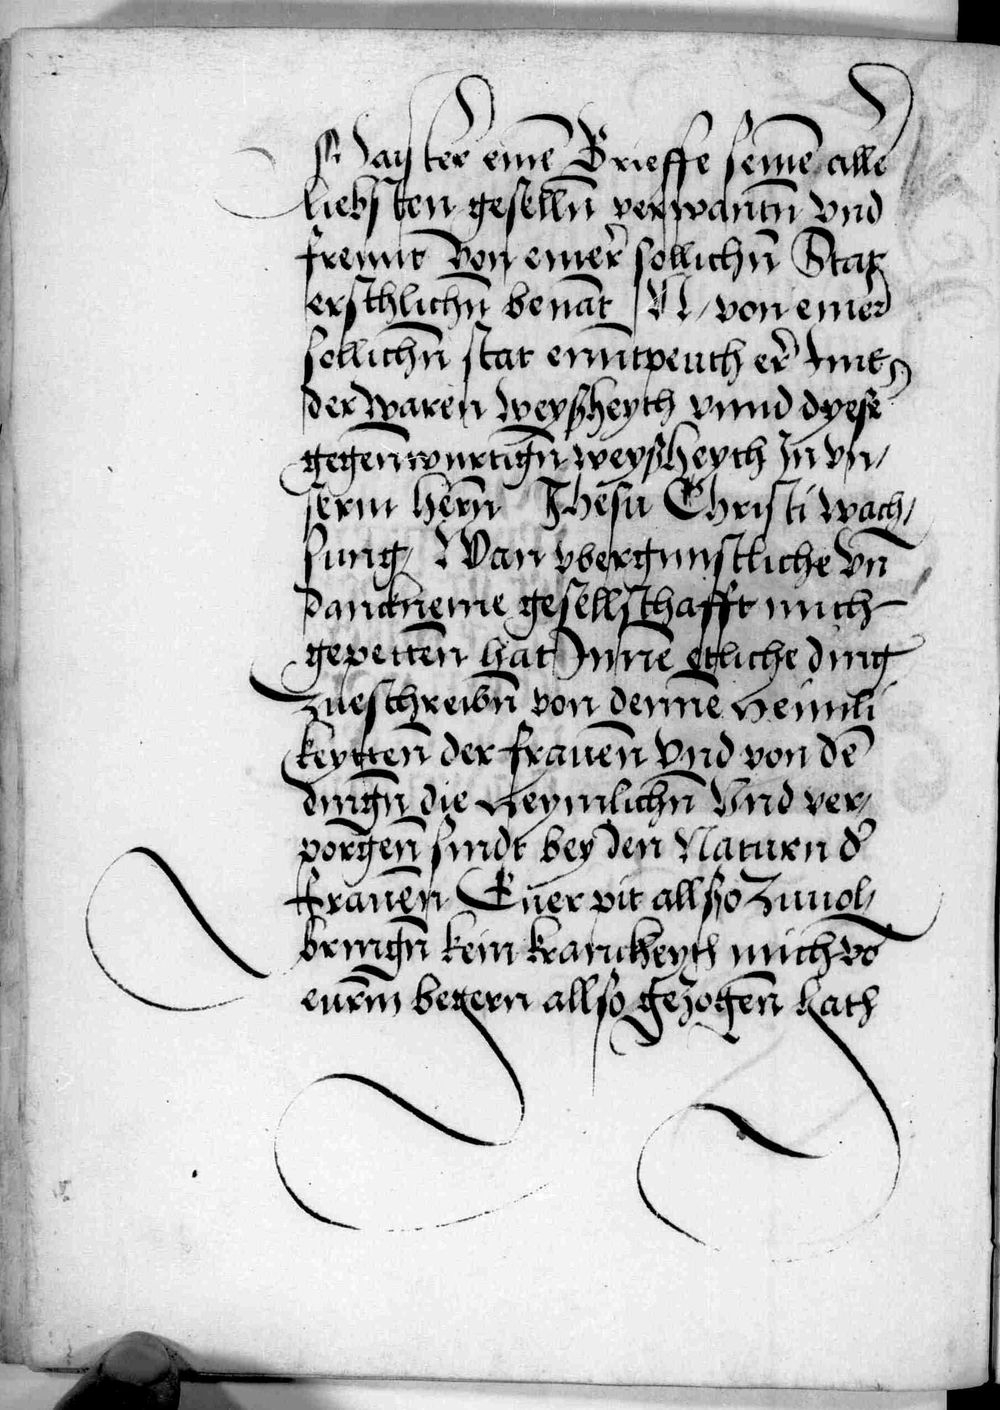 Mayster eine͂ Brieffe seine͂ alle͂
liebsten geselln̄ verwantn̄ vnd
freunt von einer̄ sollichn̄ Stat
ersthlichn̄ bena͂t N / von einer
sollichn̄ stat enntpeuth er̄ Imt
der waren weyßheyth vnnd dyese
gegenwurtign̄ weyßheyth Jn vn/
serm hern̄ Jhesu Christi wach/
sung / Wan vbergunstliche vn̄
danckneme gesellschafft mich
gepetten̄ hat Jnne͂ etliche ding
zueschreibn̄ von denne heimli
keytten̄ der frauen̄ Vnd von de͂
dingn̄ die heymlichn̄ Vnd ver/
porgen̄ sindt bey den Naturn d̓
frauen̄ Euer pit allßo zuuol/
bringn̄ kein kranckheyth mich vo͂
eurm̄ begern allso gezogen̄ hath